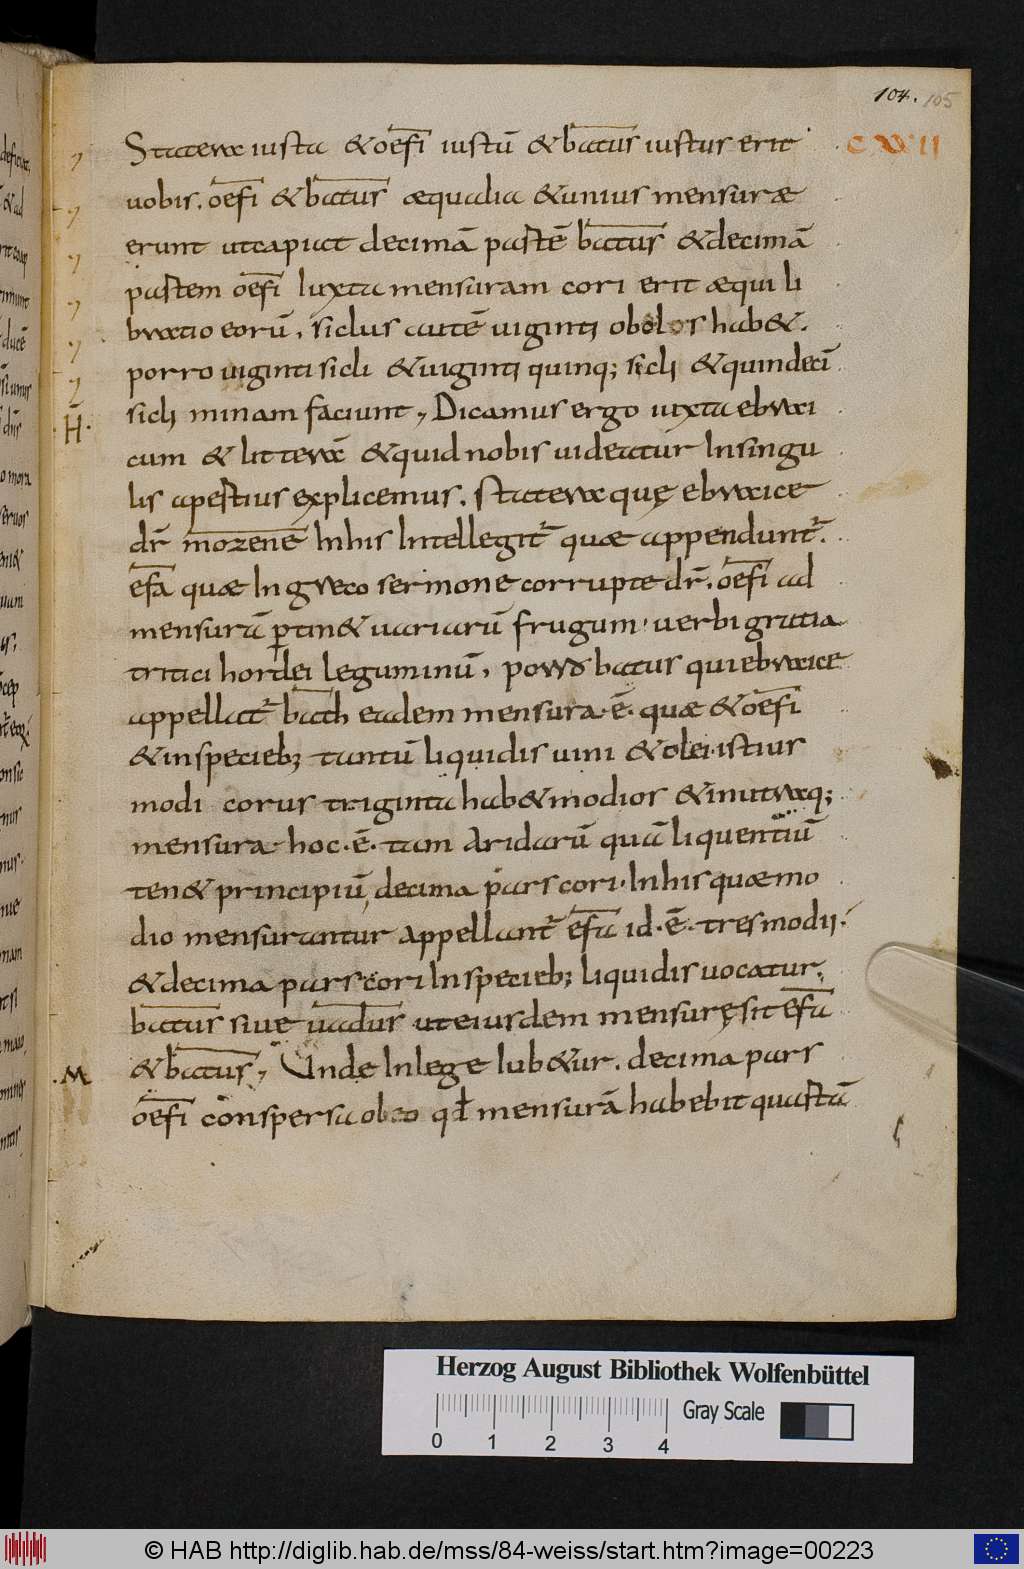 104. 105
CVIII
Statera iusta & oefi iustū & batus iustus erit
uobis. oefi & batus æqualia & unius mensuræ
erunt ut capiat decimā partē batus & decimā
partem oefi Iuxta mensuram cori erit æqui li
bratio eorū, siclus autē uiginti obolos hab&.
porro uiginti sicli & uiginti quinq; sicli & quindeci
sicli minam faciunt, Dicamus ergo iuxta ebrai
cum & litterā & quid nobis uideatur In singu
lis apertius explicemus. statera quę ebraice
dr̄ mozene In his Intellegit̄ quæ appendunt̄.
efa quæ In greco sermone corrupte dr̄. oefi ad
mensurā ptin& uariarū frugum, uerbi gratia
tritici hordei leguminū, porro batus qui ebraice
appellat̄ bath eadem mensura·ē· quæ & oefi
& in specieb; tantū liquidis uini & olei istius
modi corus triginta hab& modios & in utraq;
mensura hoc·ē· tam aridarū quā liquentiū
ten& principiū, decima pars cori. In his quæ mo
dio mensurantur appellant̄ efa id·ē· tres modii.
& decima pars cori In specieb; liquidis uocatur
batus siue uadus ut eiusdem mensurę sit efa
& batus, Unde In lege Iub&ur. decima pars
oefi conspersa oleo qđ mensurā habebit quartā
H
M
Herzog August Bibliothek Wolfenbüttel
Gray Scale
0 1 2 3 4
© HAB http://diglib.hab.de/mss/84-weiss/start.htm?image=00223